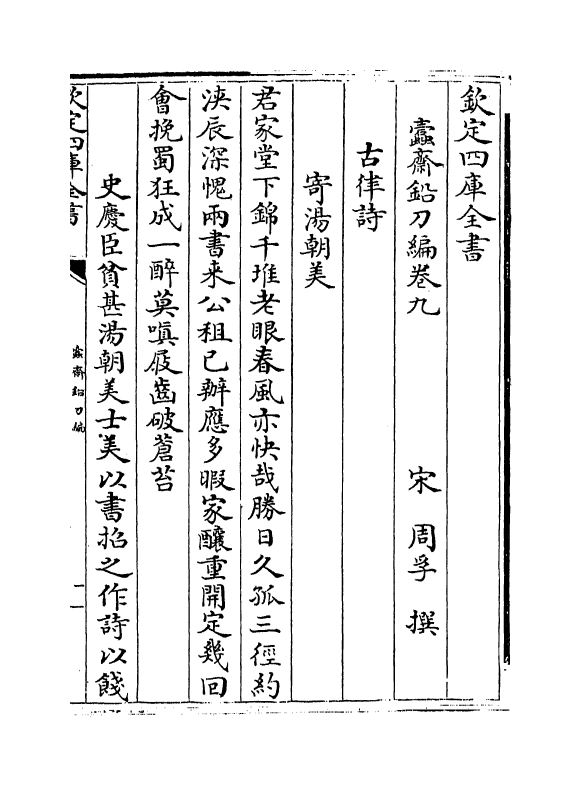 欽定四庫全書
蠹齋鉛刀編卷九
宋　周孚　撰
古律詩
寄湯朝美
君家堂下錦千堆老眼春風亦快哉勝日久孤三徑約
浹辰深愧兩書来公租已辦應多暇家釀重開定幾回
會挽蜀狂成一醉莫嗔屐齒破蒼苔
史慶臣貧甚湯朝美士美以書招之作詩以餞
欽定四庫全書
蠹齋鉛刀編
二